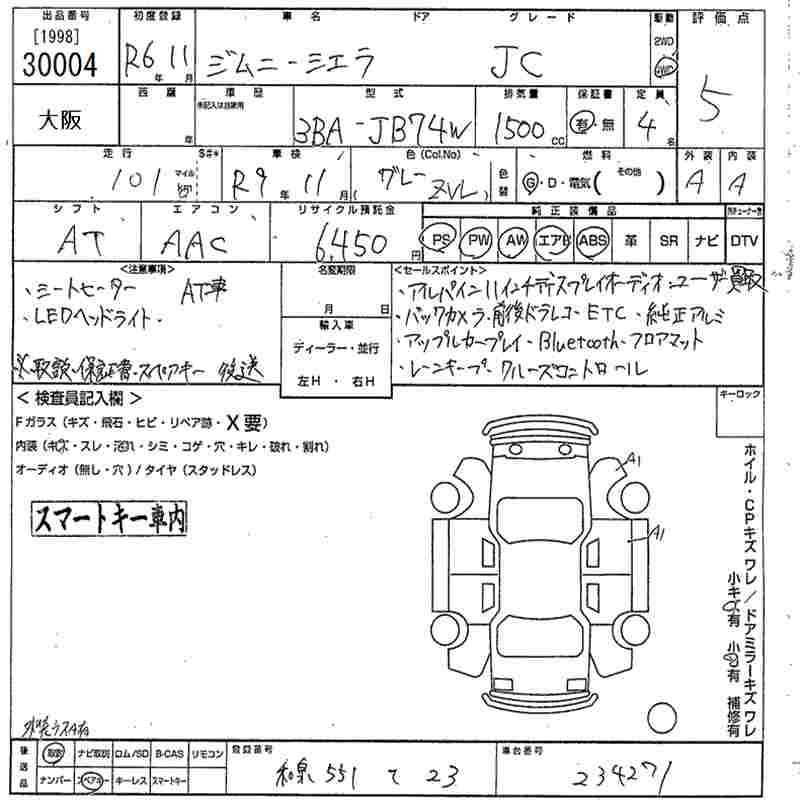 出品番号 初度登録 車名 ドア グレード 駆動 評価点
[1998]
30004 R6年 11月 ジムニーシエラ JC 2WD 4WD 5
大阪 西暦 年 車歴 未記入は自家用 型式 3BA-JB74W 排気量 1500cc 保証書 有・無 定員 4名
走行 101 マイル S#* 車検 R9年 11月 色(Col.No) グレー (ZVL) 色替 燃料 G・D・電気(その他) 外装 A 内装 A
シフト AT エアコン AAC リサイクル預託金 6,450円 純正装備品
PS PW AW エアB ABS 革 SR ナビ DTV
<注意事項>
・シートヒーター AT車
・LEDヘッドライト.
※取説・保証書・スペアキー 後送
名変期限
月 日
輸入車
ディーラー・並行
左H・右H
<セールスポイント>
・アルパイン11インチディスプレイオーディオ・ユーザー買取
・バックカメラ・前後ドラレコ・ETC・純正アルミ
・アップルカープレイ・Bluetooth・フロアマット
・レーンキープ・クルーズコントロール
<検査員記入欄>
Fガラス(キズ・飛石・ヒビ・リペア跡・X要)
内装(キズ・スレ・汚れ・シミ・コゲ・穴・キレ・破れ・割れ)
オーディオ(無し・穴)/タイヤ(スタッドレス)
スマートキー車内
キーロック
A1
A1
ホイル・CPキズ ワレ/ドアミラーキズ ワレ
小キズ有 小凹有 補修有
後送品 取説 ナビ取説 ロム/SD B-CAS リモコン
ナンバー スペアキー キーレス スマートキー
登録番号 和泉 551 て 23
車台番号 234271